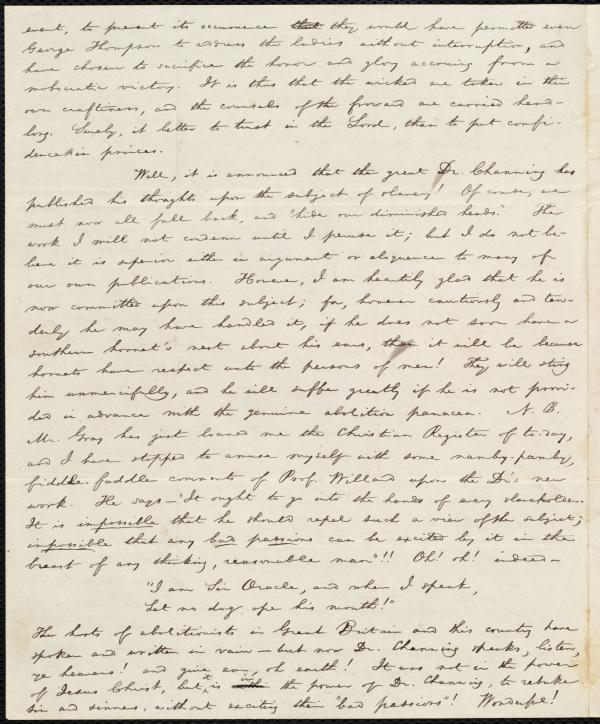 event, to prevent its occurrence they would have permitted even
George Thompson to address the ladies without interruption, and
have chosen to sacrifice the honor and glory accruing from a
mobocratic victory. It is thus that the wicked are taken in their
own craftiness, and the counsels of the froward are carried head-
long. Surely, it better to trust in the Lord, than to put confi-
dence in princes.
Well, it is announced that the great Dr. Channing has
published his thoughts upon the subject of slavery! Of course, we
must now all fall back, and "hide our diminished heads." The
work I will not condemn until I peruse it; but I do not be-
lieve it is superior either in argument or eloquence to many of
our own publications. However, I am heartily glad that he is
now committed upon this subject; for, however cautiously and ten-
derly he may have handled it, if he does not soon have a
southern hornet's nest about his ears, then it will be because
hornets have respect unto the persons of men! They will sting
him unmercifully, and he will suffer greatly if he is not provi-
ded in advance with the genuine abolition panacea. N. B.
Mr. Gray has just loaned me the Christian Register of to-day,
and I have stopped to amuse myself with some namby-pamby,
fiddle-faddle comments of Prof. Willard upon the Dr's new
work. He says—'It ought to go into the hands of every slaveholder.
It is impossible that he should repel such a view of the subject;
impossible that any bad passions can be excited by it in the
breast of any thinking, reasonable man"!! Oh! oh! indeed—
"I am Sir Oracle, and when I speak,
Let no dog ope his mouth!"
The hosts of abolitionists in Great Britain and this country have
spoken and written in vain—but now Dr. Channing speaks, listen,
ye heavens! and give ear, oh earth! It was not in the power
of Jesus Christ, but it is in the power of Dr. Channing, to rebuke
sin and sinners, without exciting their "bad passions"! Wonderful!